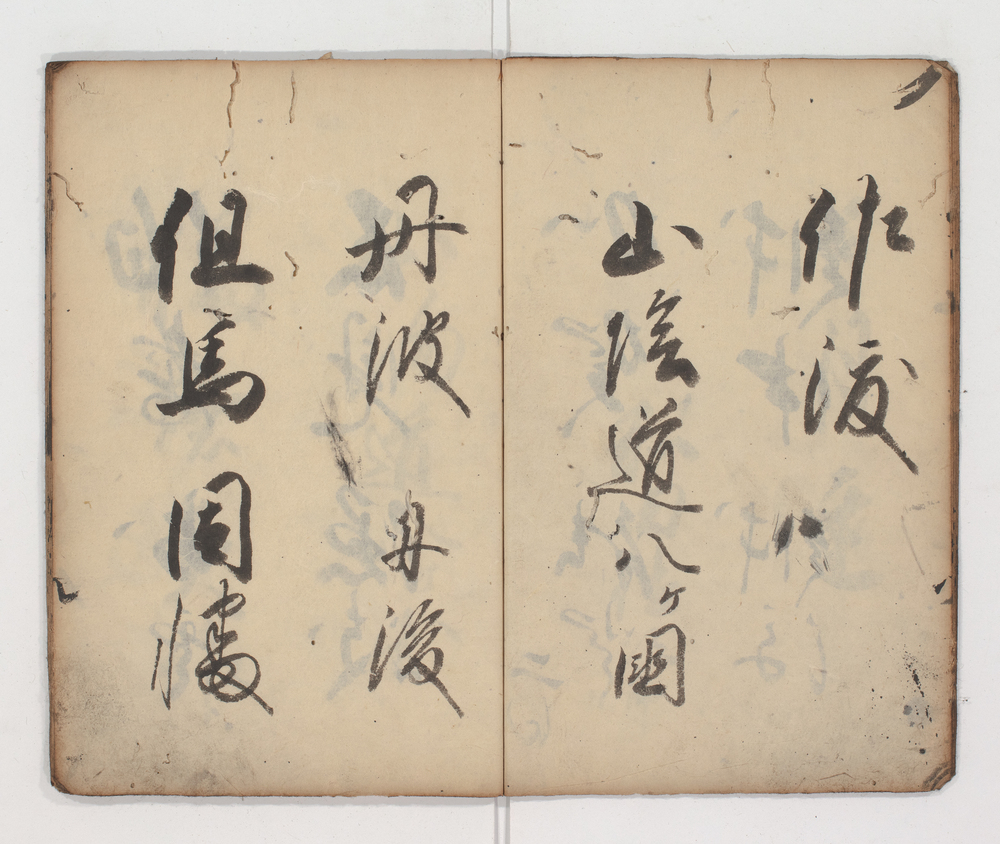 佐渡
山陰道八ケ國
丹波 丹後
但馬 因幡